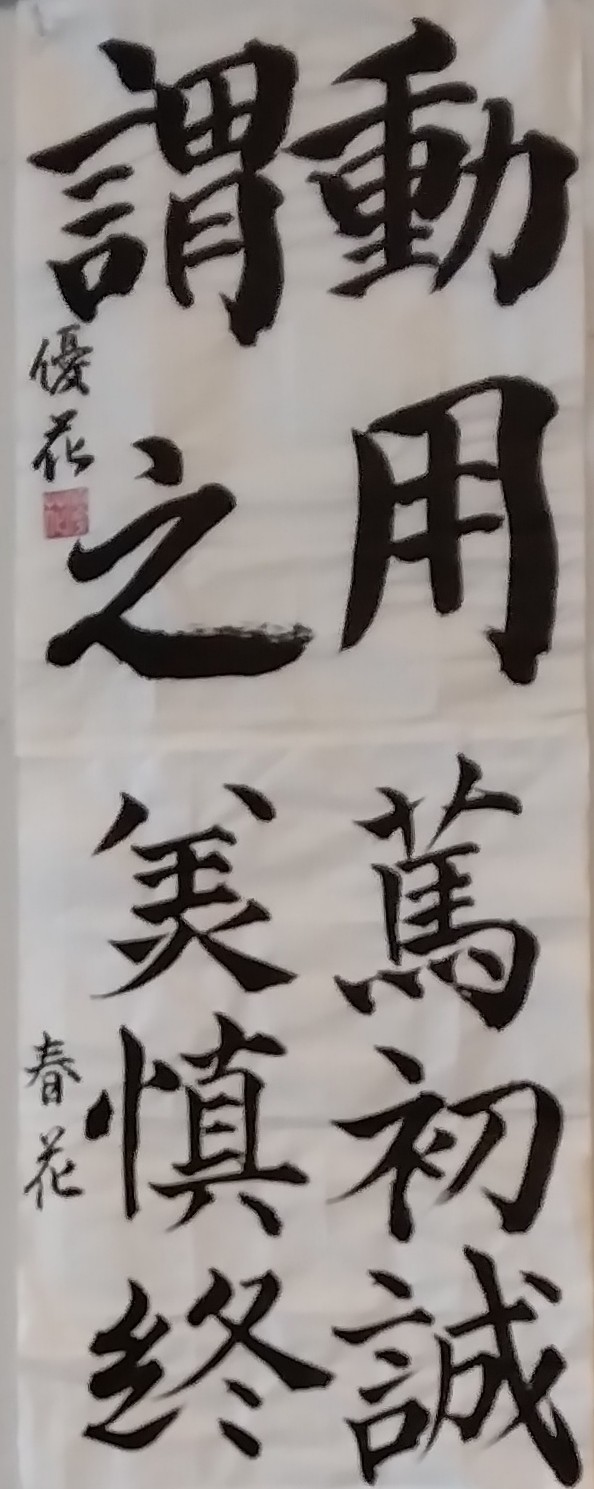 動用
謂之
優花
篤初誠
美慎終
春花